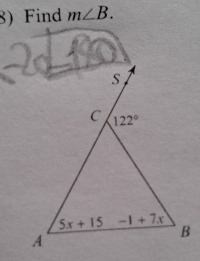 8) Find m∠B.
S
C 122°
5x + 15 -1 + 7x
A B